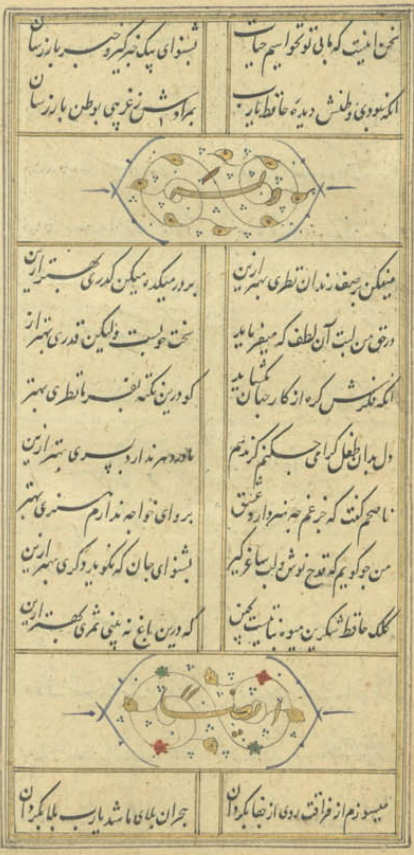 سخن اینست که ما بی تو نخواهیم حیات بشنو ای پیک خبر گیر و خبر باز رسان
آنکه بودی وطنش دیده حافظ یارب بمرادش ز غریبی بوطن باز رسان
وله
میفکن بر صف رندان نظری بهتر ازین بر در میکده میکن گذری بهتر ازین
در حق من لبت آن لطف که میفرماید سخت خوبست ولیکن قدری بهتر از
آنکه فکرش گره از کار جهان بگشاید گو درین نکته بفرما نظری بهتر
دل بدان طفل گرامی چکنم گر ندهم مادر دهر ندارد پسری بهتر ازین
ناصحم گفت که جز غم چه هنر دارد عشق برو ای خواجه ندارم هنری بهتر
من چو گویم که قدح نوش و لب ساغر گیر بشنو ای جان که نگوید دگری بهتر ازین
کلک حافظ شکرین میوه نباتیست بچین که درین باغ نه بینی ثمری بهتر ازین
ایضا
میسوزم از فراقت روی از جفا بگردان هجران بلای ما شد یارب بلا بگردان